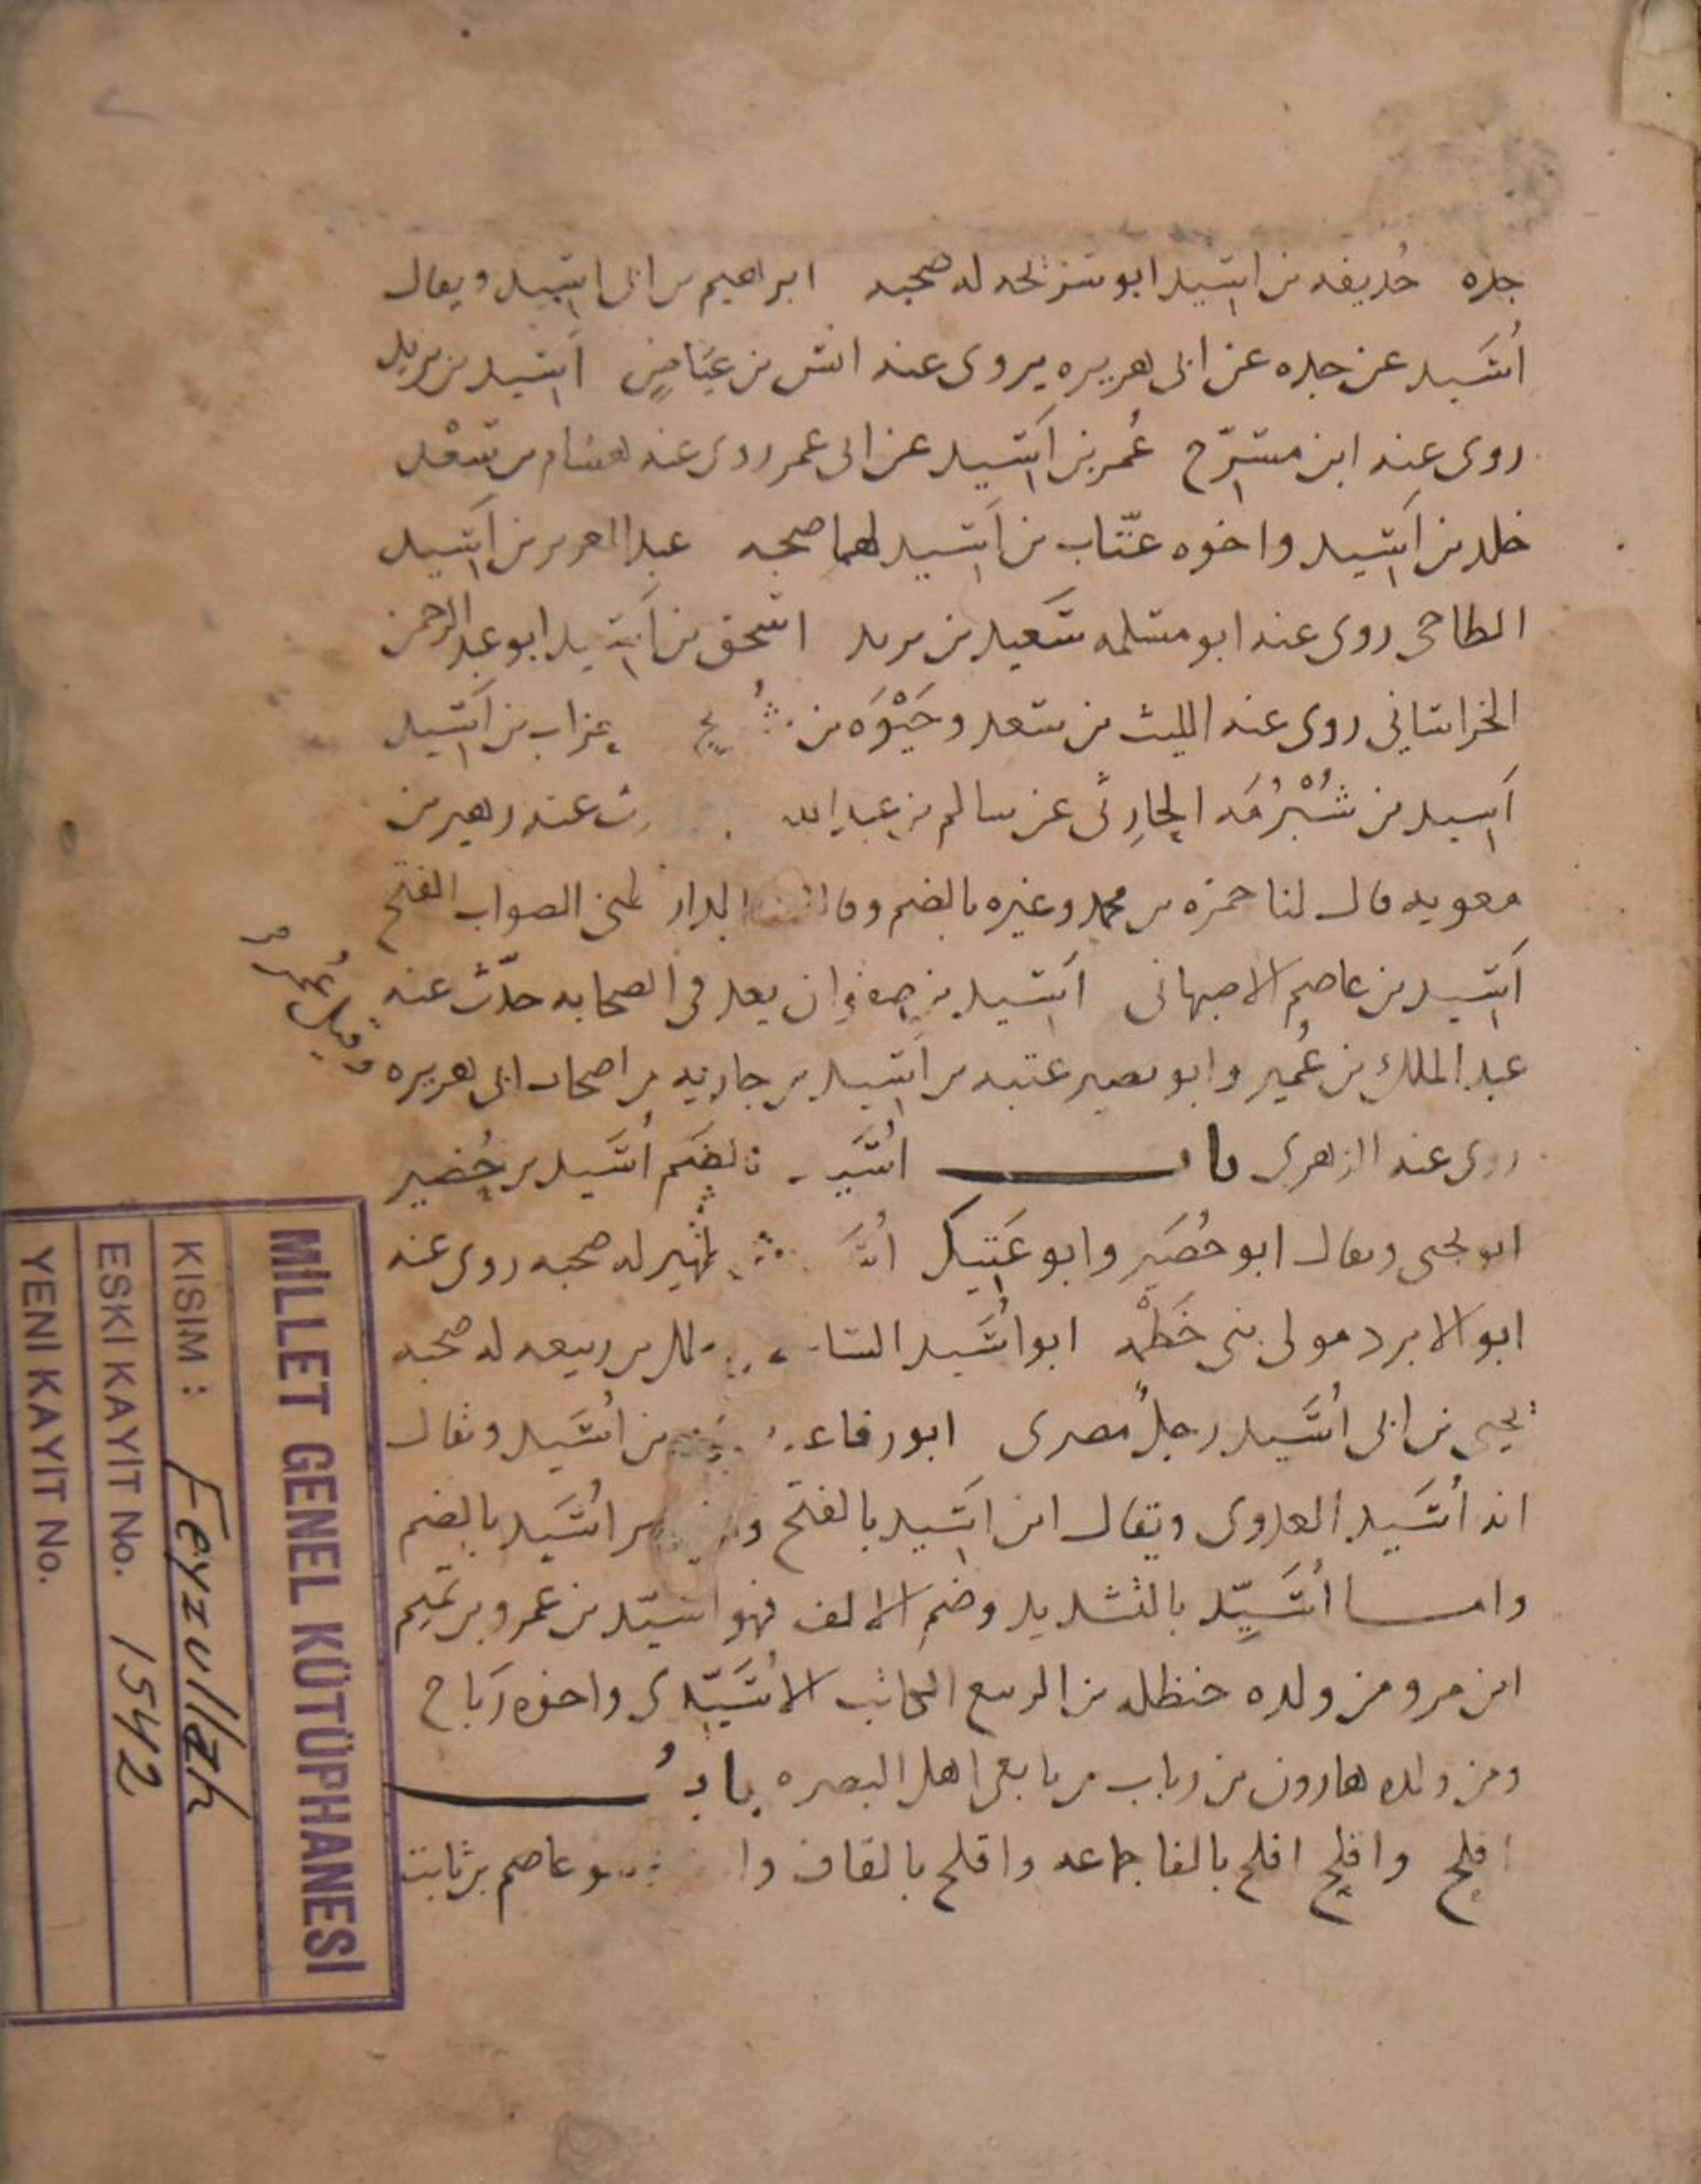 جده حذيفه بن اسيد ابو سريحه له صحبه ابراهيم بن ابى اسيد ويقال
أسَيد عن جده عن ابى هريره يروى عنه انس بن عياض اسيد بن يزيد
روى عنه ابن مسرّح عُمر بن اَسيد عن ابى عمر روى عنه هشام بن سعْد
خلد بن اَسيد واخوه عتّاب بن اَسيد لهما صحبه عبد العزيز بن اَسيد
الطاحى روى عنه ابو مسلمه سَعيد بن يزيد اسحق بن اَسيد ابو عبد الرحمن
الخراسانى روى عنه الليث بن سعد وحَيْوَه بن عزاب بن اَسيد
اَسيد بن شُبْرُمَه الحارِثى عن سالم بن عبد الله عنه زهير بن
معويه قال لنا حمزه بن محمد وغيره بالضم الصواب الفتح
اَسيد بن عاصم الاصبهانى اَسيد بن صفوان يعد فى الصحابه حدّث عنه
عبد الملك بن عُمير وابو بصير عتبه بن اَسيد بن جاريه من اصحاب ابى هريره
روى عنه الزهرى باب اُسَيد بالضم اُسَيد بن حُضير
ابو يحيى ويقال ابو حُضَير وابو عَتيك ظهير له صحبه روى عنه
ابو الابرد مولى بنى خَطْمه ابو اُسَيد بن ربيعه له صحبه
يحيى بن ابى اُسَيد رجلٌ مصرى ابو رفاعه بن اُسَيد ويقال
انه اُسَيد العدوى ويقال ابن اَسيد بالفتح بن اُسَيد بالضم
وامـــا اُسَيّد بالتشديد وضم الالف فهو اسيّد بن عمرو بن تميم
ابن مر ومن ولده حنظله بن الربيع الكاتب الاُسَيّدى واخوه رَباح
ومن ولده هارون بن رياب من تابعى اهل البصره بابُ
افلح واقلح افلح بالفا جماعه واقلح بالقاف عاصم بن ثابت
MİLLET GENEL KÜTÜPHANESİ
KISIM : Feyzullah
ESKİ KAYIT No. 1542
YENİ KAYIT No.